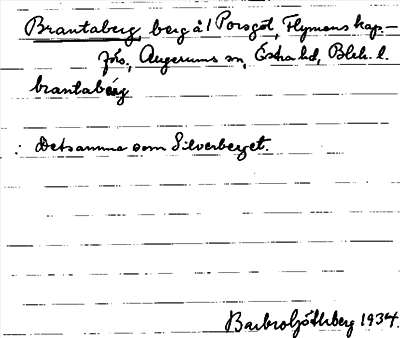 Brantaberg, berg å 1 Porsgöl, Flymens kap.-
förs., Augerums sn, Östra hd, Blek. l.
brantabærg
: Detsamma som Silverberget.
Barbro Göthberg 1934.